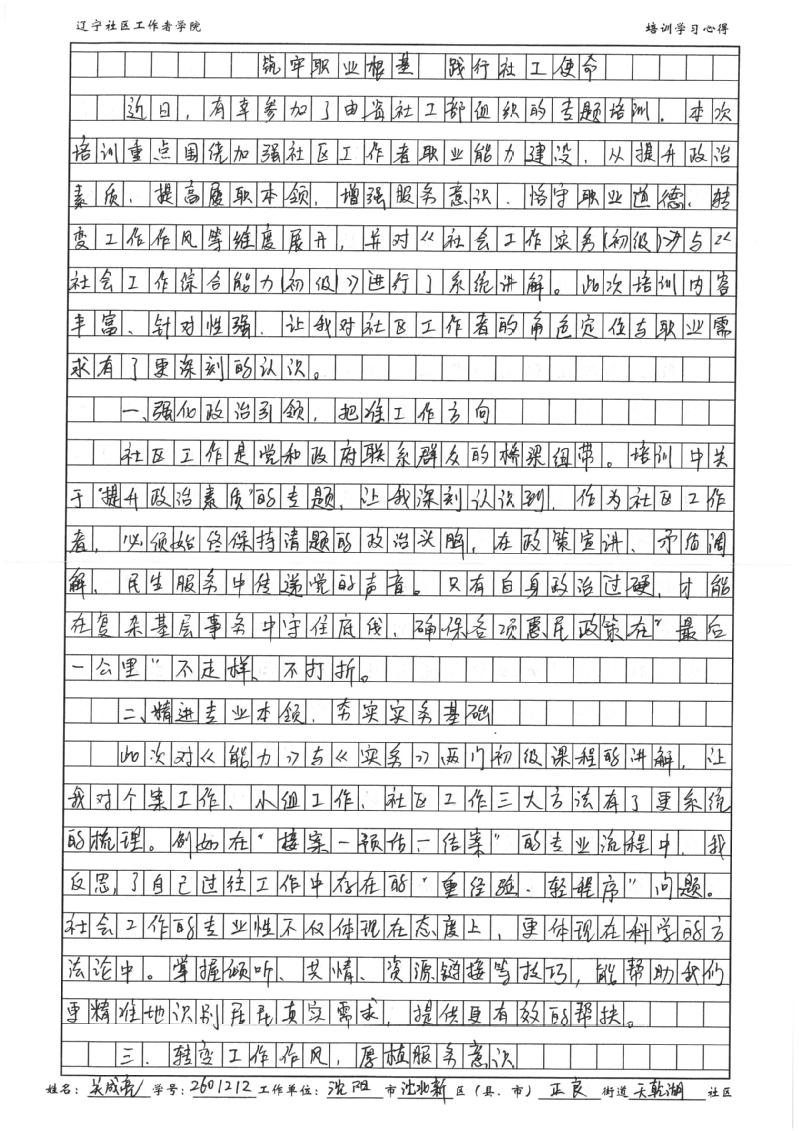 辽宁社区工作者学院 培训学习心得
筑牢职业根基 践行社工使命
近日，有幸参加了由省社工部组织的专题培训。本次
培训重点围绕加强社区工作者职业能力建设，从提升政治
素质、提高履职本领、增强服务意识、恪守职业道德、转
变工作作风等维度展开，并对《社会工作实务(初级)》与《
社会工作综合能力(初级)》进行了系统讲解。此次培训内容
丰富、针对性强，让我对社区工作者的角色定位与职业需
求有了更深刻的认识。
一、强化政治引领，把准工作方向
社区工作是党和政府联系群众的桥梁纽带。培训中关
于“提升政治素质”的专题，让我深刻认识到，作为社区工作
者，必须始终保持清醒的政治头脑，在政策宣讲、矛盾调
解、民生服务中传递党的声音。只有自身政治过硬，才能
在复杂基层事务中守住底线，确保各项惠民政策在“最后
一公里”不走样、不打折。
二、精进专业本领，夯实实务基础
此次对《能力》与《实务》两门初级课程的讲解，让
我对个案工作、小组工作、社区工作三大方法有了更系统
的梳理。例如在“接案—预估—结案”的专业流程中，我
反思了自己过往工作中存在的“重经验、轻程序”问题。
社会工作的专业性不仅体现在态度上，更体现在科学的方
法论中。掌握倾听、共情、资源链接等技巧，能帮助我们
更精准地识别居民真实需求，提供更有效的帮扶。
三、转变工作作风，厚植服务意识
姓名：吴成亮 学号：2601212 工作单位：沈阳 市 沈北新 区（县、市） 正良 街道 天乾湖 社区